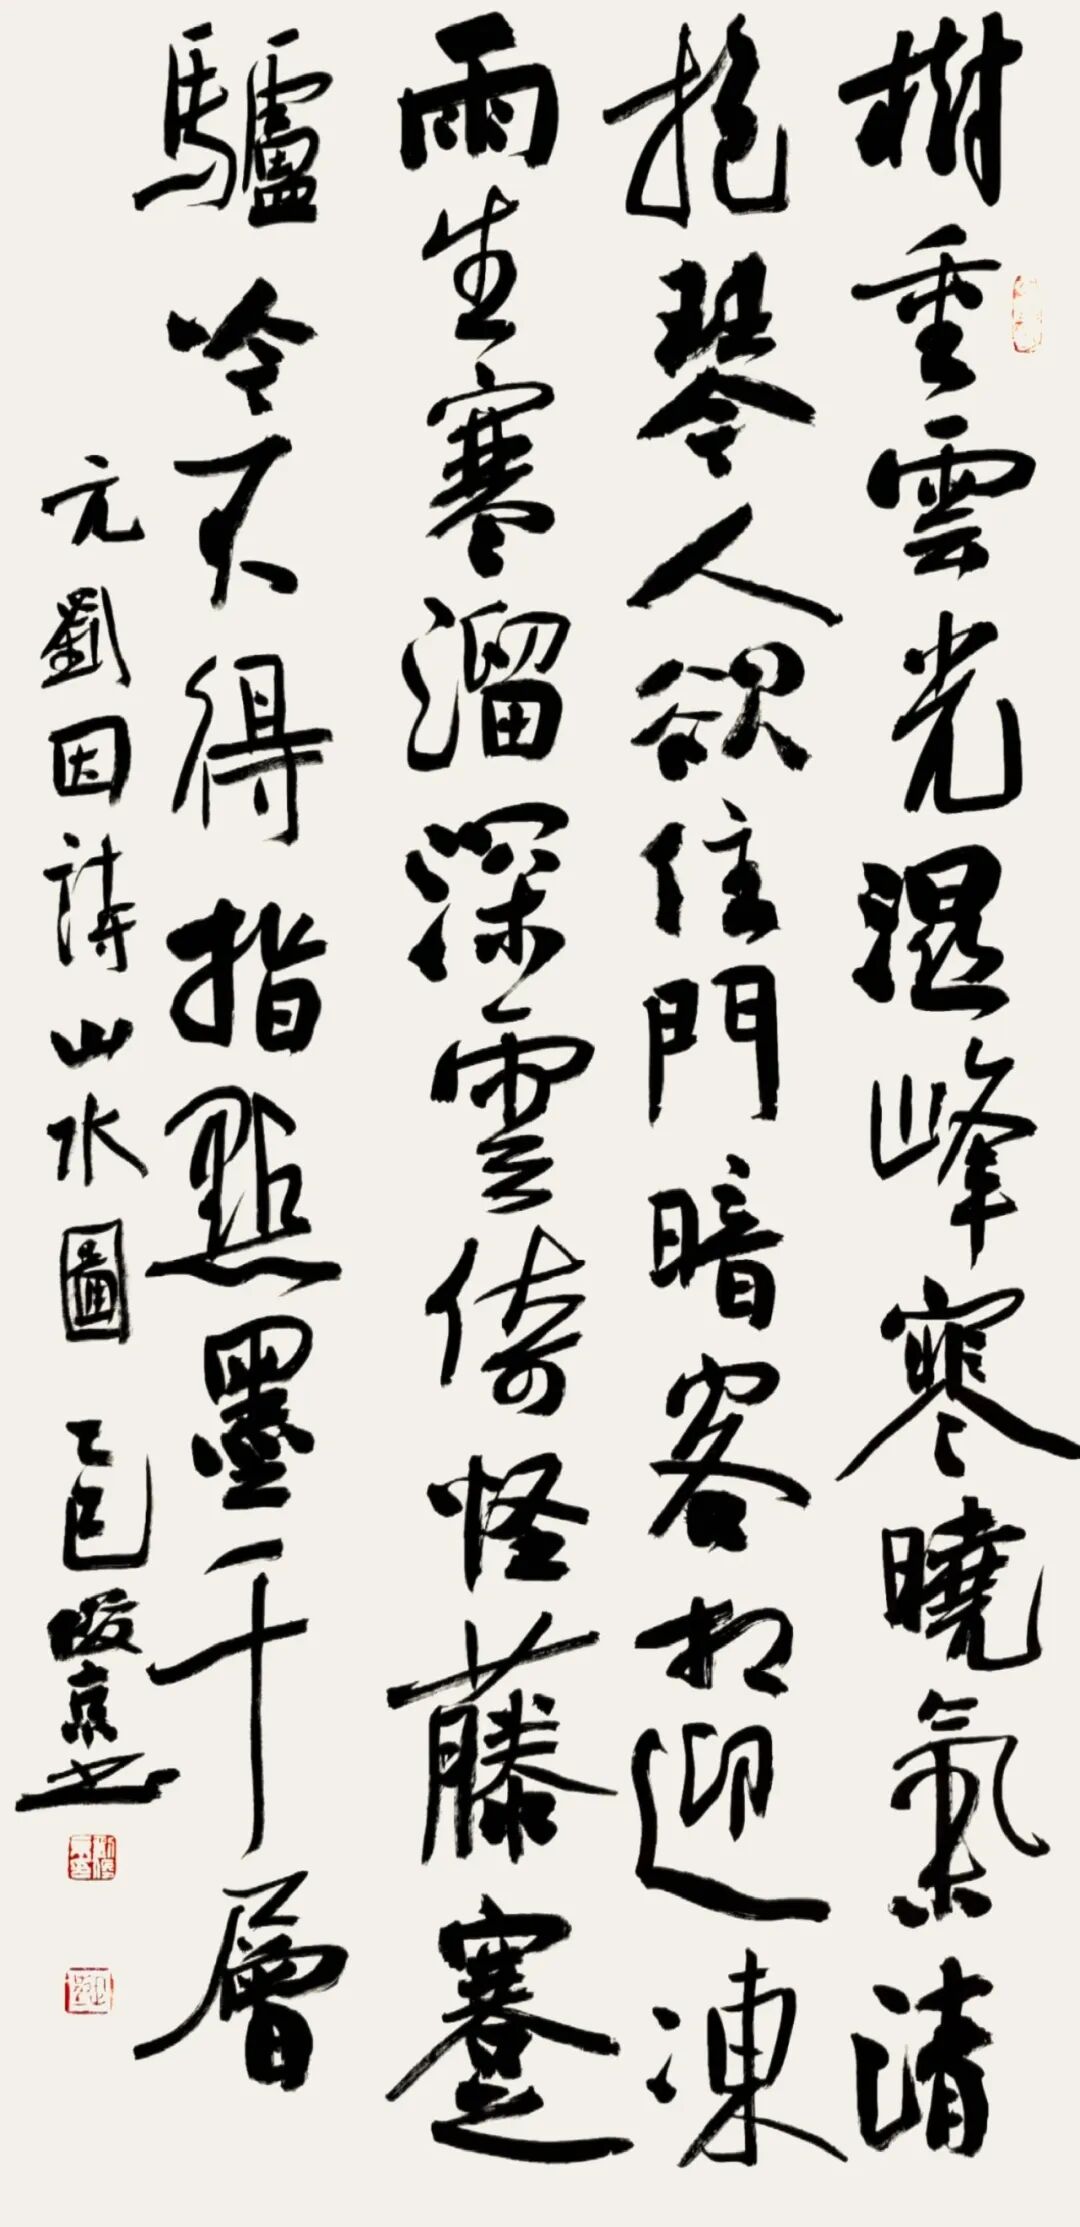 樹重雲光濕峰寒曉氣清
抱琴人欲住門暗客相迎凍
雨生寒溜深雲倚怪藤蹇
驢吟不得指點墨千層
元劉因詩山水圖 乙巳俊京書